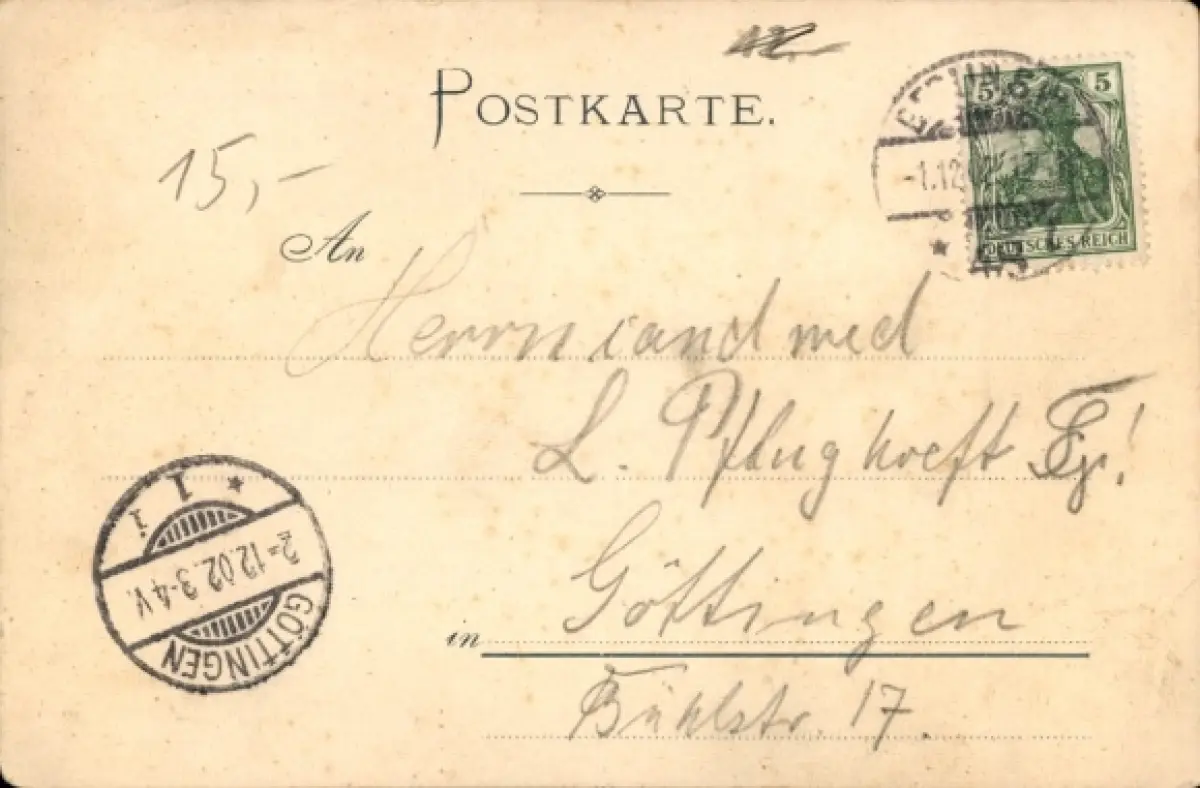 POSTKARTE.
5 5
15,-
-1.12.02
DEUTSCHES REICH
An
Herrn cand med
L. Pflughoeft
1 *
2=12.02.3-4V.
GÖTTINGEN
in Göttingen
Bühlstr. 17.